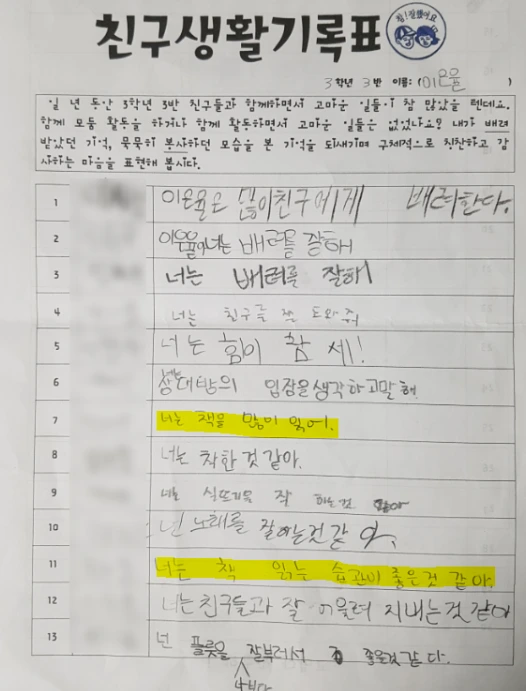 친구생활기록표
참! 잘했어요
3학년 3반 이름: (이은율)
일 년 동안 3학년 3반 친구들과 함께하면서 고마운 일들이 참 많았을 텐데요.
함께 모둠 활동을 하거나 함께 활동하면서 고마운 일들은 없었나요? 내가 배려
받았던 기억, 묵묵히 봉사하던 모습을 본 기억을 되새기며 구체적으로 칭찬하고 감
사하는 마음을 표현해 봅시다.
1 이은율은 많이친구에게 배려한다.
2 이은율아너는 배려를 잘해
3 너는 배려를 잘해
4 너는 친구를 잘 도와줘
5 너는 힘이 참 세!
6 상대방의 입장을생각하고말해.
7 너는 책을 많이 읽어.
8 너는 착한것 같아.
9 너는 실뜨기를 하는것
10 넌 노래를 잘하는것같아.
11 너는 책 읽는 습관이 좋은것 같아.
12 너는친구들과 잘 어울려 지내는것같아
13 넌 플룻을 잘부러서 좋은것같다.